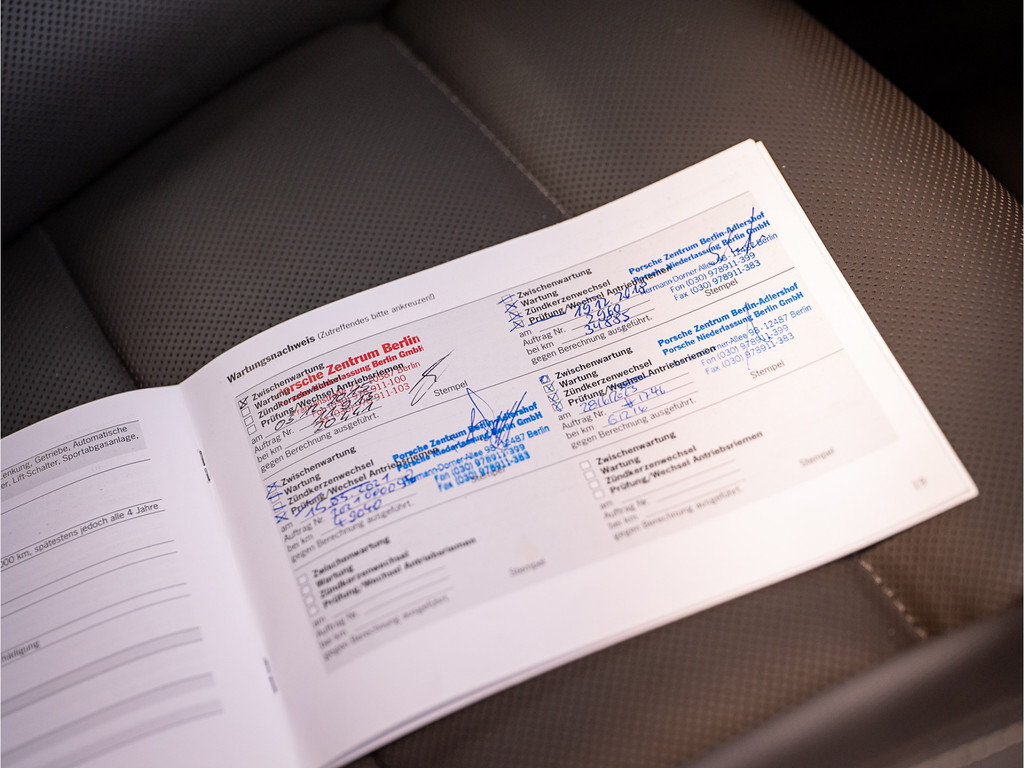 enkung, Getriebe, Automatische
er, Lift-Schalter, Sportabgasanlage,
000 km, spätestens jedoch alle 4 Jahre
Wartungsnachweis (Zutreffendes bitte ankreuzen!)
Zwischenwartung
Wartung
Zündkerzenwechsel
Prüfung/Wechsel Antriebsriemen
am
Auftrag Nr.
bei km 20441
gegen Berechnung ausgeführt.
Stempel
Porsche Zentrum Berlin
Niederlassung Berlin GmbH
10587 Berlin
978911-100
978911-103
Zwischenwartung
Wartung
Zündkerzenwechsel
Prüfung/Wechsel Antriebsriemen
am 19.12.2018
Auftrag Nr.
bei km 34885
gegen Berechnung ausgeführt.
Stempel
Porsche Zentrum Berlin-Adlershof
Porsche Niederlassung Berlin GmbH
Hermann-Dorner-Allee 98 - 12487 Berlin
Fon (030) 978911-399
Fax (030) 978911-383
Zwischenwartung
Wartung
Zündkerzenwechsel
Prüfung/Wechsel Antriebsriemen
am 15.03.2021
Auftrag Nr.
bei km 49040
gegen Berechnung ausgeführt.
Porsche Zentrum Berlin-Adlershof
Porsche Niederlassung Berlin GmbH
Hermann-Dorner-Allee 98 - 12487 Berlin
Fon (030) 978911-399
Fax (030) 978911-383
Zwischenwartung
Wartung
Zündkerzenwechsel
Prüfung/Wechsel Antriebsriemen
am
Auftrag Nr.
bei km
gegen Berechnung ausgeführt.
Stempel
Porsche Zentrum Berlin-Adlershof
Porsche Niederlassung Berlin GmbH
-Dorner-Allee 98 - 12487 Berlin
Fon (030) 978911-399
Fax (030) 978911-383
Zwischenwartung
Wartung
Zündkerzenwechsel
Prüfung/Wechsel Antriebsriemen
am
Auftrag Nr.
bei km
gegen Berechnung ausgeführt.
Stempel
Zwischenwartung
Wartung
Zündkerzenwechsel
Prüfung/Wechsel Antriebsriemen
am
Auftrag Nr.
bei km
gegen Berechnung ausgeführt.
Stempel